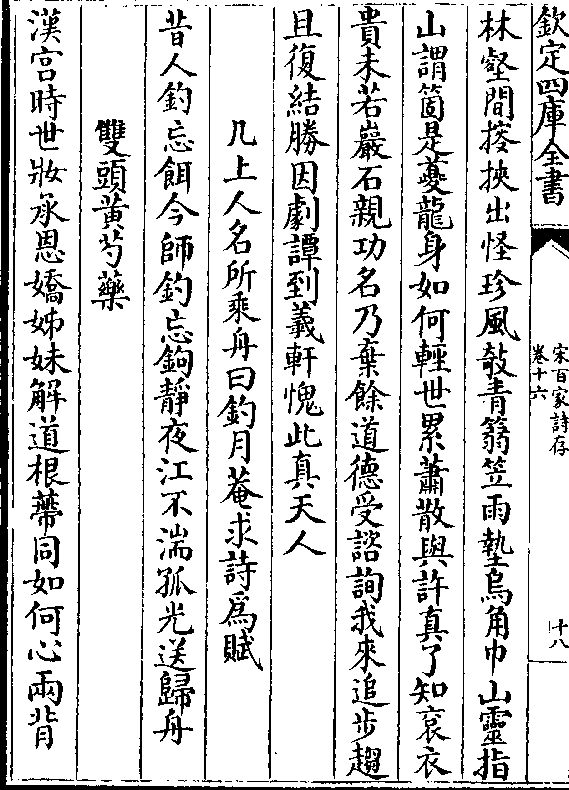 欽定四庫全書
宋百家詩存
卷十六
十八
林壑間搭挾出怪珍風敧青篛笠雨墊烏角巾山靈指
山謂箇是夔龍身如何輕世累蕭散與許真了知衮衣
貴未若巖石親功名乃棄餘道德受諮詢我來追步趨
且復結勝因劇譚到羲軒愧此真天人
几上人名所乘舟曰釣月菴求詩為賦
昔人釣忘餌今師釣忘鉤靜夜江不湍孤光送歸舟
雙頭黃芍藥
漢宮時世妝承恩嬌姊妹解道根蔕同如何心兩背